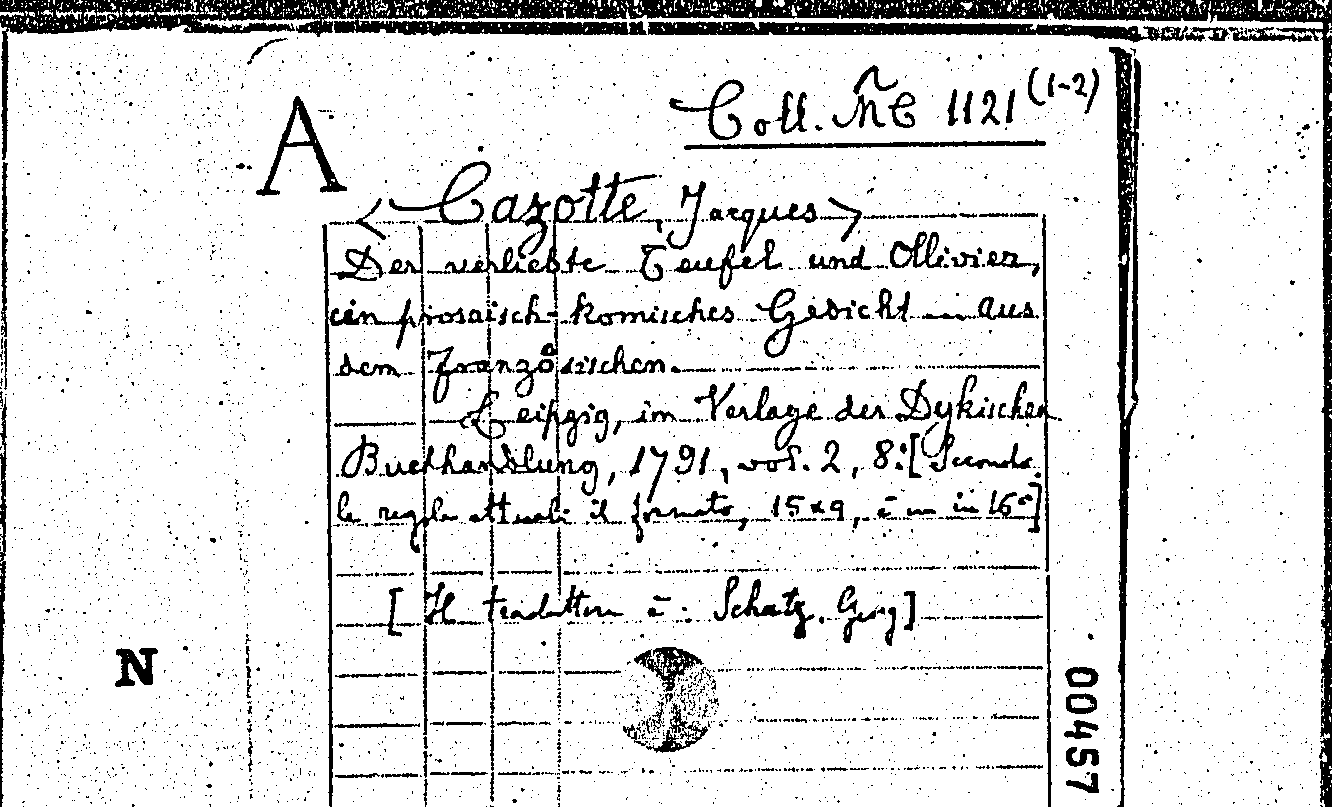 A
Coll. ÑC 1121 (1-2)
<Cazotte, Jacques>
Der verliebte Teufel und Ollivier,
ein prosaisch-komisches Gedicht ... aus
dem Französischen.
Leipzig, im Verlage der Dykischen
Buchhandlung, 1791, vol. 2, 8: [Secondo
le regole attuali il formato, 15x9, è un in 16°]
[Il traduttore è: Schatz, Georg]
N
00457